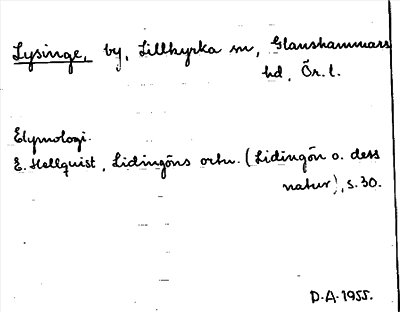 Lysinge, by, Lillkyrka sn, Glanshammars
hd, Ör. l.
Etymologi.
E. Hellquist, Lidingöns ortn. (Lidingön o. dess
natur), s. 30.
D-A-1955.